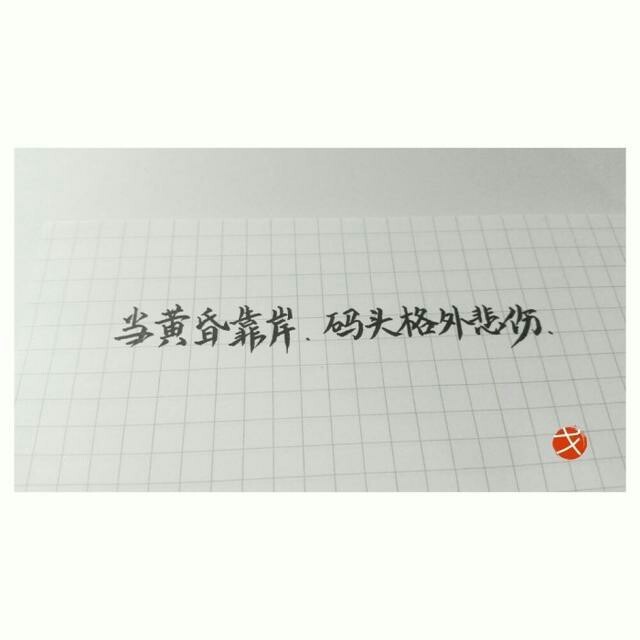 当黄昏靠岸、码头格外悲伤、